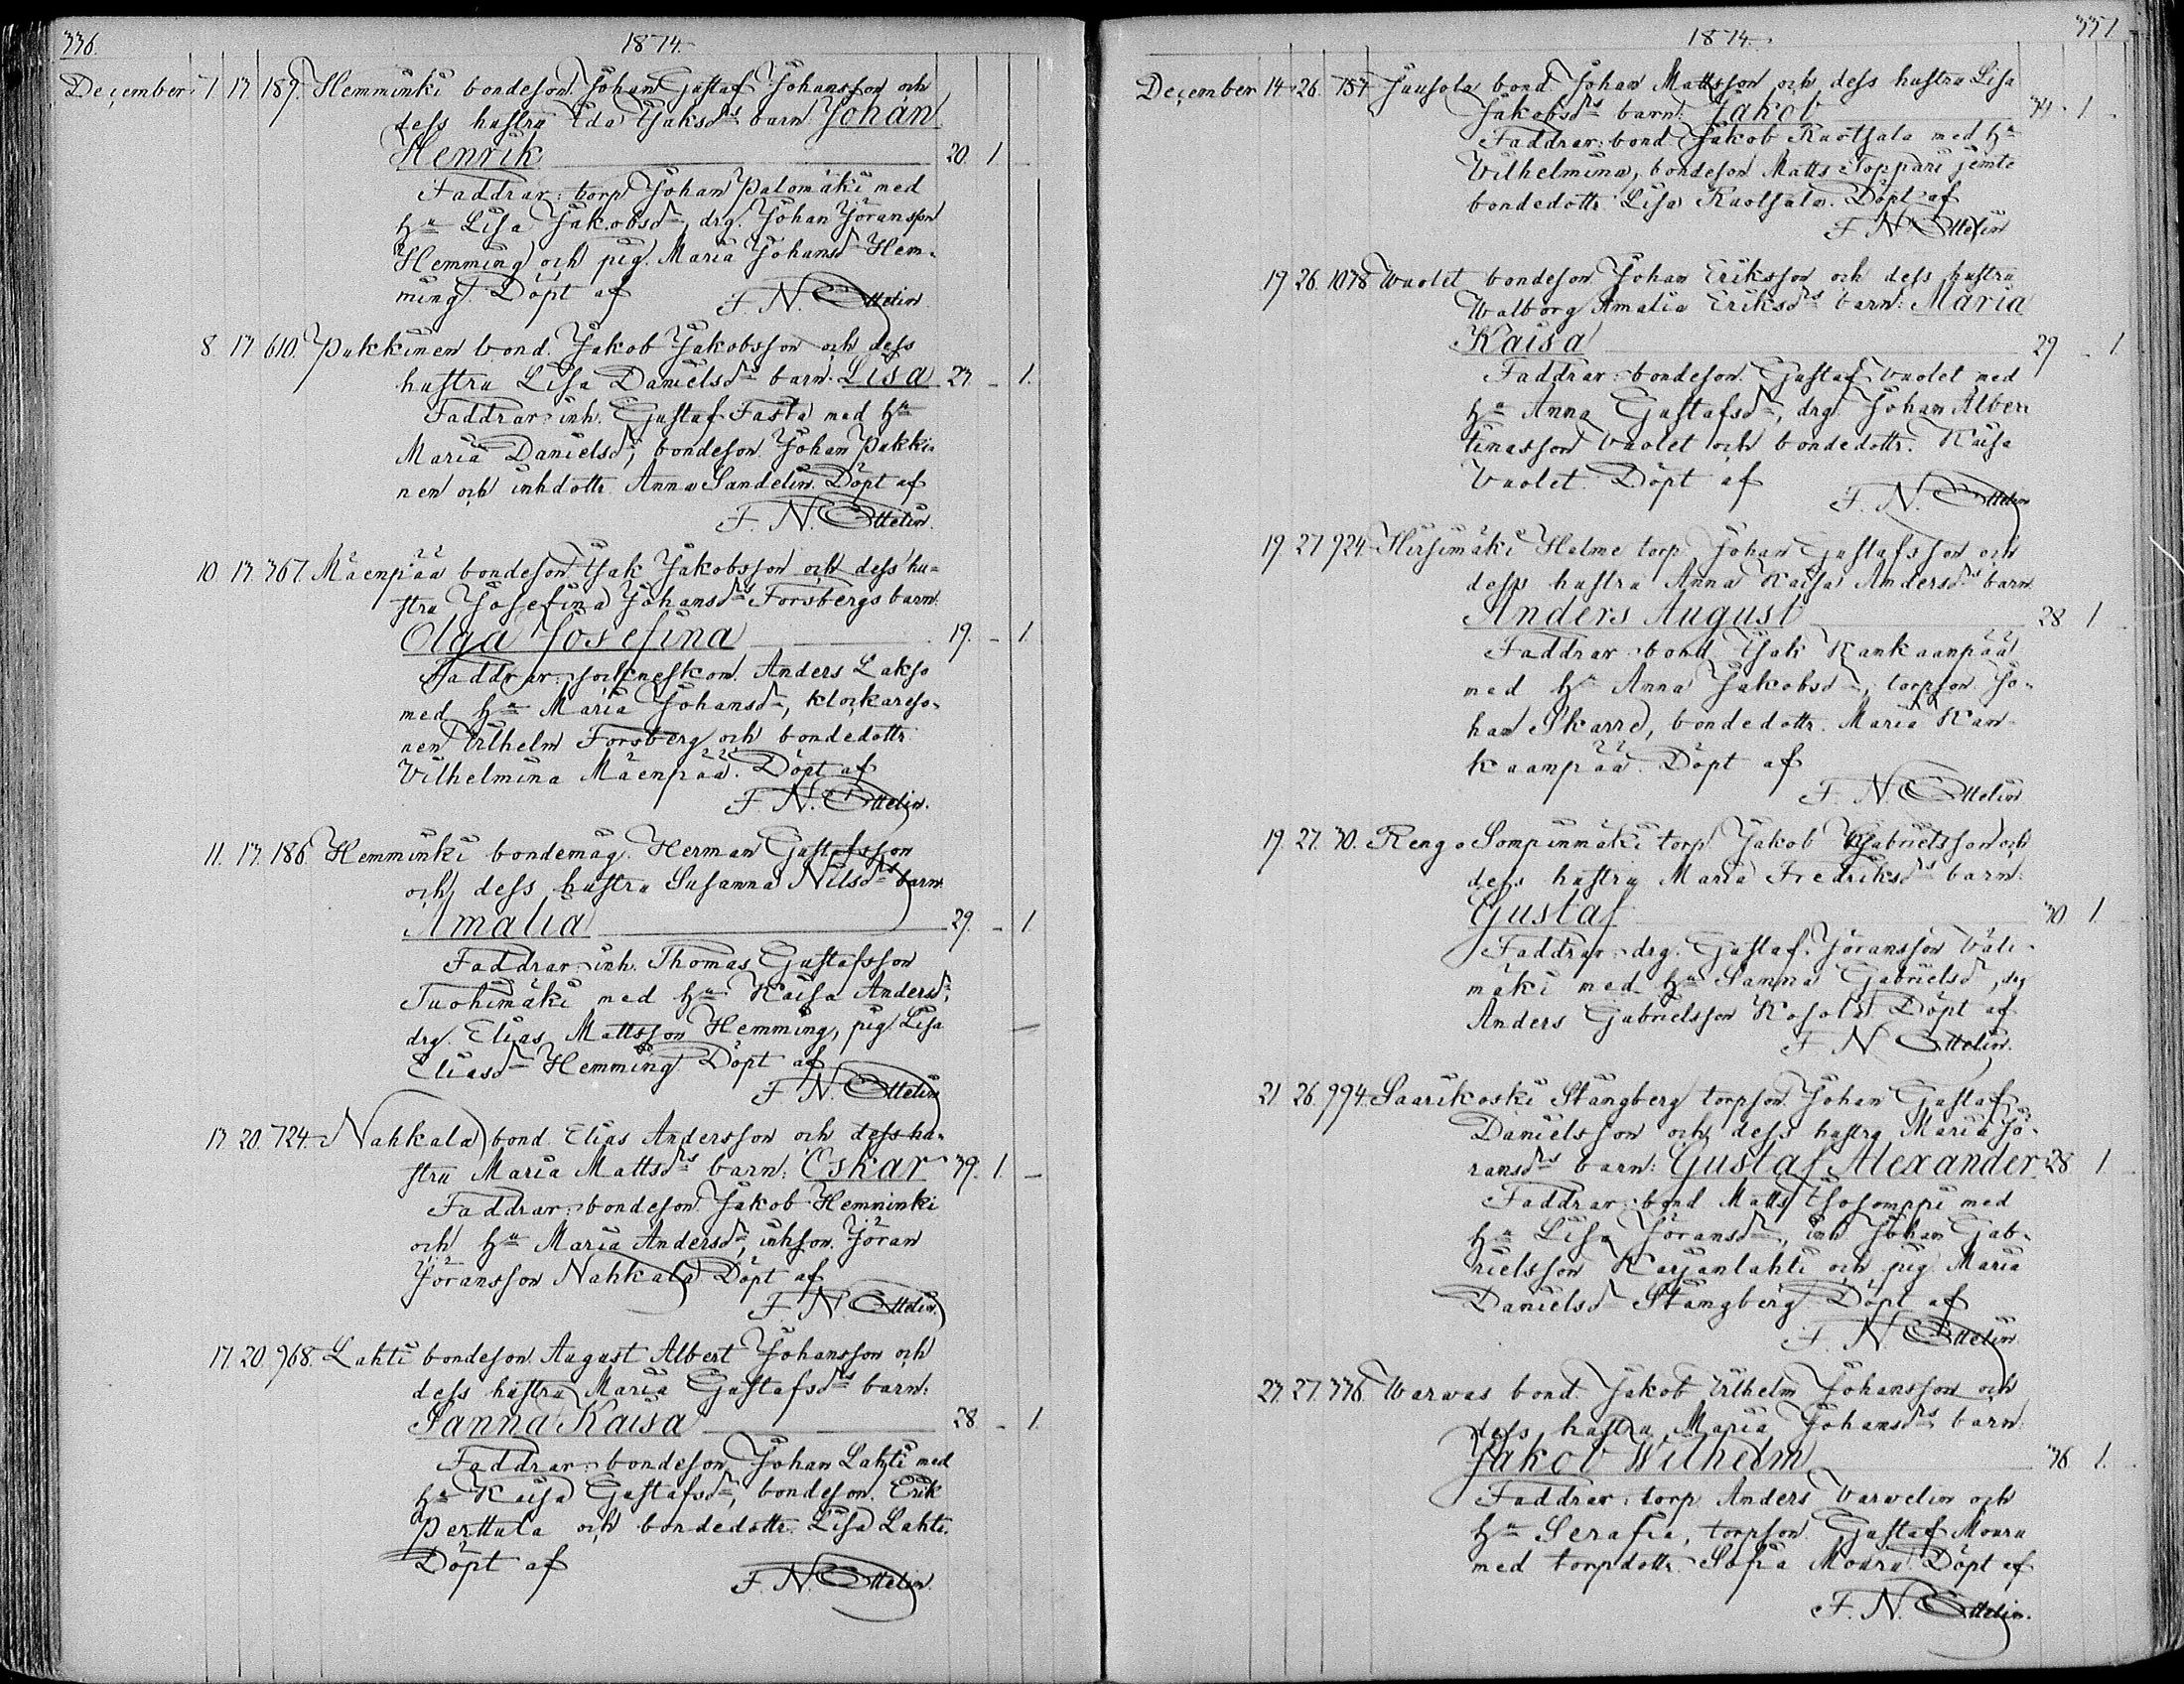 336.
1874.
December 7 13 189. Hemminki bondeson Johan Gustaf Johansson och
dess hustru Ida Isaksdrs barn Johan
Henrik 20. 1
Faddrar: torp. Johan Palomäki med
hu Lisa Jakobsdr, drg. Johan Göransson
Hemming och pig. Maria Johansdr Hem-
ming Döpt af F. N. Ottelin
8 13 610. Pukkinen bond. Jakob Jakobsson och dess
hustru Lisa Danielsdrs barn: Lisa 23. - 1.
Faddrar: inh. Gustaf Fasta med hu
Maria Danielsdr, bondeson Johan Pukki-
nen och inhdottr. Anna Sandelin. Döpt af
F. N. Ottelin.
10 13 367. Mäenpää bondeson Isak Jakobsson och dess hu-
stru Josefina Johansdrs Forsbergs barn:
Olga Josefina 19. - 1.
Faddrar: socknesskom. Anders Lakso
med hu Maria Johansdr, klockareso-
nen Vilhelm Forsberg och bondedottr.
Vilhelmina Mäenpää. Döpt af
F. N. Ottelin.
11. 13. 186. Hemminki bondemåg. Herman Gustafsson
och dess hustru Susanna Nilsdrs barn:
Amalia 29. - 1
Faddrar: inh. Thomas Gustafsson
Tuohimäki med hu Kaisa Andersdr,
drg. Elias Mattsson Hemming, pig. Lisa
Eliasdr Hemming Döpt af
F. N. Ottelin
13 20. 724. Nahkala bond. Elias Andersson och dess hu-
stru Maria Mattsdrs barn: Oskar 39. 1. -
Faddrar: bondeson Jakob Hemminki
och hu Maria Andersdr, inhson. Jöran
Jöransson Nahkala Döpt af
F. N. Ottelin.
17. 20. 968. Lahti bondeson August Albert Johansson och
dess hustru Maria Gustafsdrs barn:
Sanna Kaisa 28 - 1.
Faddrar: bondeson Johan Lahti med
hu Kaisa Gustafsdr, bondeson. Erik
Perttula och bondedottr. Lisa Lahti.
Döpt af F. N. Ottelin.
337
1874.
December 14 26. 754 Jausola bond. Johan Mattsson och dess hustru Lisa
Jakobsdrs barn: Jakob 44 1.
Faddrar: bond. Jakob Ruotsala med hu
Vilhelmina, bondeson Matts Toppari jemte
bondedottr. Lisa Ruotsala. Döpt af
F. N. Ottelin
19 26. 1078 Wuolet bondeson Johan Eriksson och dess hustru
Walborg Amalia Eriksdrs barn: Maria
Kaisa 29 - 1.
Faddrar: bondeson. Gustaf Vuolet med
hu Anna Gustafsdr, drg. Johan Alber
tinasson Vuolet och bondedottr. Kaisa
Vuolet Döpt af F. N. Ottelin
19. 27 924. Hirsimäki Holme torp. Johan Gustafsson och
dess hustru Anna Kaisa Andersdrs barn.
Anders August 28 1
Faddrar: bond. Isak Kankaanpää
med hu Anna Jakobsdr, torpson Jo-
han Skarre, bondedottr. Maria Kan-
kaanpää. Döpt af
F. N. Ottelin
19. 27. 30. Rengo Sompinmäki torp. Jakob Gabrielsson och
dess hustru Maria Fredriksdrs barn:
Gustaf 30 1.
Faddrar: drg. Gustaf Jöransson Väli-
mäki med hu Sanna Gabrielsdr, drg
Anders Gabrielsson Kosola. Döpt af
F. N. Ottelin.
21 26. 994. Saarikoski Stångberg torpson. Johan Gustaf
Danielsson och dess hustru Maria Jö-
ransdrs barn: Gustaf Alexander 28 1
Faddrar: bond Matts Isosomppi med
hu Lisa Jöransdr, inh Johan Gab-
rielsson Karjanlahti och pig. Maria
Danielsdr Stångberg Döpt af
F. N. Ottelin.
23. 27. 336. Warwas bond. Jakob Vilhelm Johansson och
dess hustru Maria Johansdrs barn.
Jakob Wilhelm 36 1.
Faddrar: torp. Anders Varvelin och
hu Serafia, torpson. Gustaf Mouru
med torpdottr. Sofia Mouru Döpt af
F. N. Ottelin.